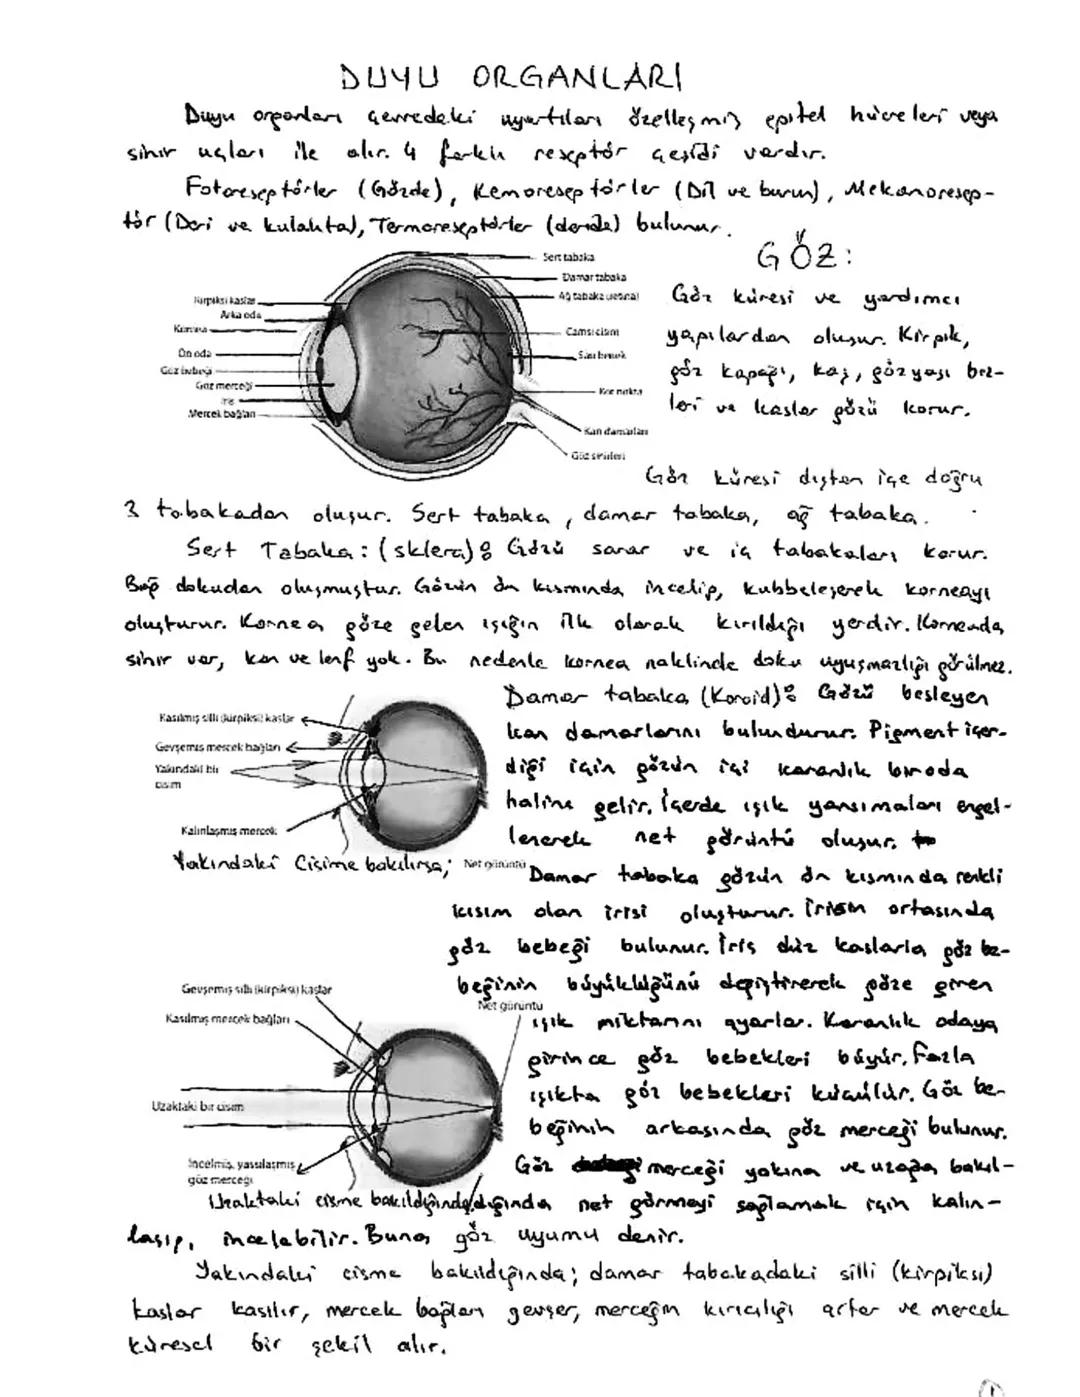 DUYU ORGANLARI
Duyu organları çevredeki uyartıları özelleşmiş epitel hücreleri veya
sinir uçları ile alır. 4 farklı reseptör çeşidi vardır.
Fotoreseptörler (Gözde), Kemoreseptörler (Dil ve burun), Mekanoresep-
tör (Deri ve kulakta), Termoreseptörler (deride) bulunur.
GÖZ:
Sert tabaka
Damar tabaka
Ağ tabaka (retina)
Camsı cisim
Sarı benek
Kör nokta
Kan damarları
Göz sinirleri
Kirpiksi kaslar
Arka oda
Kornea
Ön oda
Göz bebeği
Göz merceği
İris
Mercek bağları
Göz küresi ve yardımcı
yapılardan oluşur. Kirpik,
göz kapağı, kaş, gözyaşı bez-
leri ve kaslar gözü korur.
Göz küresi dıştan içe doğru
3 tabakadan oluşur. Sert tabaka, damar tabaka, ağ tabaka.
Sert Tabaka: (sklera): Gözü sarar ve iç tabakaları korur.
Bağ dokudan oluşmuştur. Gözün ön kısmında incelip, kubbeleşerek korneayı
oluşturur. Kornea göze gelen ışığın ilk olarak kırıldığı yerdir. Korneada
sinir var, kan ve lenf yok. Bu nedenle kornea naklinde doku uyuşmazlığı görülmez.
Damar tabaka (Koroid): Gözü besleyen
kan damarlarını bulundurur. Pigment içer-
diği için gözün içi karanlık bir oda
haline gelir. İçerde ışık yansımaları engel-
lenerek net görüntü oluşur.
Kasılmış silli (kirpiksi) kaslar
Gevşemiş mercek bağları
Yakındaki bir
cisim
Kalınlaşmış mercek
Net görüntü
Yakındaki Cisime bakılırsa;
Damar tabaka gözün ön kısmında renkli
kısım olan irisi oluşturur. İrisin ortasında
göz bebeği bulunur. İris düz kaslarla göz be-
beğinin büyüklüğünü değiştirerek göze giren
ışık miktarını ayarlar. Karanlık odaya
girince göz bebekleri büyür. Fazla
ışıkta göz bebekleri küçülür. Göz be-
beğinin arkasında göz merceği bulunur.
Göz merceği yakına ve uzağa bakıl-
dığında net görmeyi sağlamak için kalın-
Gevşemiş silli (kirpiksi) kaslar
Kasılmış mercek bağları
Net görüntü
Uzaktaki bir cisim
İncelmiş, yassılaşmış
göz merceği
Uzaktaki cisme bakıldığında
laşıp, incelebilir. Buna göz uyumu denir.
Yakındaki cisme bakıldığında; damar tabakadaki silli (kirpiksi)
kaslar kasılır, mercek bağları gevşer, merceğin kırıcılığı artar ve mercek
küresel bir şekil alır.
1